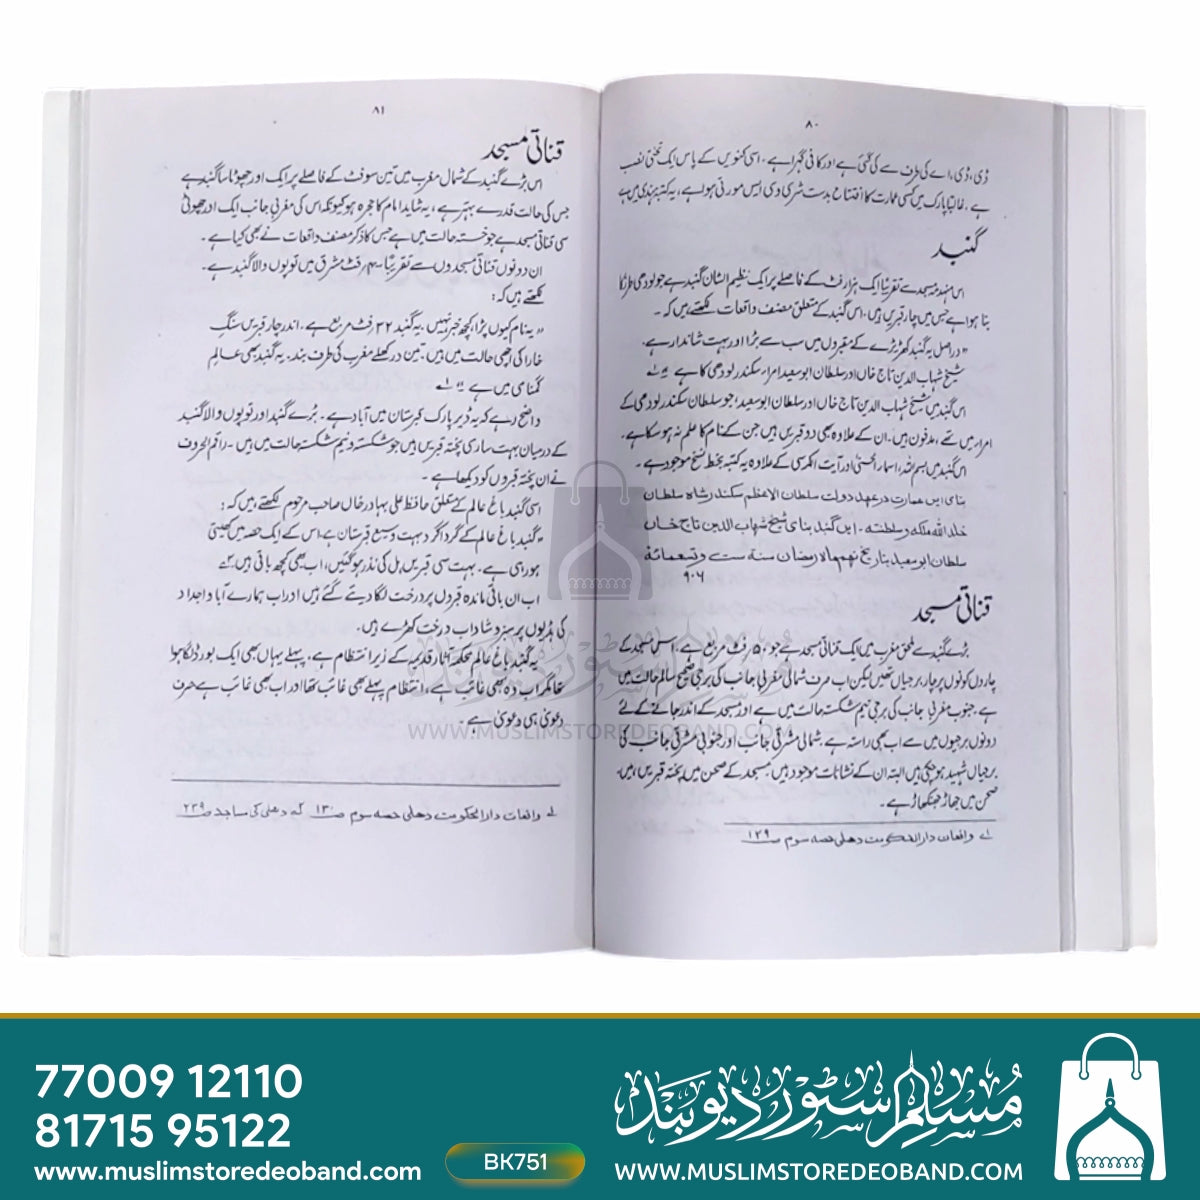 ۸۰
ڈی، ڈی، اے کی طرف سے کی گئی ہے اور کافی گہرا ہے۔ اسی کنویں کے پاس ایک تختی نصب
ہے، غالباً پارک میں کسی عمارت کا افتتاح بدست شری وی ایس مورتی ہوا ہے، یہ کتبہ ہندی میں ہے
گنبد
اس منہد مسجد سے تقریباً ایک ہزار فٹ کے فاصلے پر ایک عظیم الشان گنبد ہے جو لودھی طرز کا
بنا ہوا ہے جس میں چار قبریں ہیں۔ اس گنبد کے متعلق مصنف واقعات لکھتے ہیں کہ۔
"دراصل یہ گنبد کھڑیڑے کے مقبروں میں سب سے بڑا اور بہت شاندار ہے۔
شیخ شہاب الدین تاج خاں اور سلطان ابوسعید امراء سکندر لودھی کا ہے" ۱؎
اس گنبد میں شیخ شہاب الدین تاج خاں اور سلطان ابوسعید؛ جو سلطان سکندر لودھی کے
امراء میں تھے، مدفون ہیں۔ ان کے علاوہ بھی دو قبریں ہیں جن کے نام کا علم نہ ہو سکا ہے۔
اس گنبد میں بسم اللہ، اسماء الحسنیٰ اور آیت الکرسی کے علاوہ یہ کتبہ بخط نسخ موجود ہے۔
بنای ایں عمارت در عہد دولت سلطان الاعظم سکندر شاہ سلطان
خلد اللہ ملکہ و سلطنتہ۔ ایں گنبد بنای شیخ شہاب الدین تاج خاں
سلطان ابوسعید بتاریخ نہم ماہ رمضان سنۃ ست و تسعمائۃ
۹۰۶
قناتی مسجد
بڑے گنبد سے ملحق مغرب میں ایک قناتی مسجد ہے جو ۵۰ فٹ مربع ہے۔ اس مسجد کے
چاروں کونوں پر چار برجیاں تھیں لیکن اب صرف شمالی مغربی جانب کی برجی صحیح سالم حالت میں
ہے۔ جنوب مغربی جانب کی برجی نیم شکستہ حالت میں ہے اور مسجد کے اندر جانے کے لئے
دونوں برجیوں میں سے اب بھی راستہ ہے۔ شمالی مشرقی جانب اور جنوبی مشرقی جانب کی
برجیاں شہید ہو چکی ہیں البتہ ان کے نشانات موجود ہیں۔ مسجد کے صحن میں پختہ قبریں، ہیں۔
صحن میں جھاڑ جھنکھاڑ ہے۔
۱؎ واقعات دارالحکومت دہلی حصہ سوم صـ ۱۲۹
۸۱
قناتی مسجد
اس بڑے گنبد کے شمال مغرب میں تین سو فٹ کے فاصلے پر ایک اور چھوٹا سا گنبد ہے
جس کی حالت قدرے بہتر ہے، یہ شاید امام کا حجرہ ہو کیونکہ اس کی مغربی جانب ایک اور چھوٹی
سی قناتی مسجد ہے جو خستہ حالت میں ہے جس کا ذکر مصنف واقعات نے بھی کیا ہے۔
ان دونوں قناتی مسجدوں سے تقریباً ۴۰۰ فٹ مشرق میں توپوں والا گنبد ہے۔
لکھتے ہیں کہ:
"یہ نام کیوں پڑا، کچھ خبر نہیں۔ یہ گنبد ۳۲ فٹ مربع ہے۔ اندر چار قبریں سنگِ
خارا کی اچھی حالت میں ہیں۔ تین در کھلے مغرب کی طرف بند۔ یہ گنبد بھی عالمِ
گمنامی میں ہے" ۱؎
واضح رہے کہ یہ ڈیر پارک قبرستان میں آباد ہے۔ بڑے گنبد اور توپوں والا گنبد
کے درمیان بہت ساری پختہ قبریں ہیں جو شکستہ و نیم شکستہ حالت میں ہیں۔ راقم الحروف
نے ان پختہ قبروں کو دیکھا ہے۔
اسی گنبد باغ عالم کے متعلق حافظ علی بہادر خاں صاحب مرحوم لکھتے ہیں کہ:
"گنبد باغ عالم کے گرداگرد بہت وسیع قبرستان ہے، اس کے ایک حصہ میں کھیتی
ہو رہی ہے۔ بہت سی قبریں ہل کی نذر ہو گئیں، اب بھی کچھ باقی ہیں ۲؎
اب ان باقی ماندہ قبروں پر درخت لگا دیئے گئے ہیں اور اب ہمارے آباء و اجداد
کی ہڈیوں پر سبز و شاداب درخت کھڑے ہیں۔
یہ گنبد باغ عالم محکمہ آثار قدیمہ کے زیر انتظام ہے، پہلے یہاں بھی ایک بورڈ لگا ہوا
تھا مگر اب وہ بھی غائب ہے، انتظام پہلے بھی غائب تھا اور اب بھی غائب ہے صرف
دعویٰ ہی دعویٰ ہے۔
۱؎ واقعات دارالحکومت دہلی حصہ سوم صـ ۱۳۰ ۲؎ دہلی کی مساجد صـ ۲۳۹
مسلم سٹور دیوبند
WWW.MUSLIMSTOREDEOBAND.COM
77009 12110
81715 95122
www.muslimstoredeoband.com
BK751
مسلم سٹور دیوبند
WWW.MUSLIMSTOREDEOBAND.COM